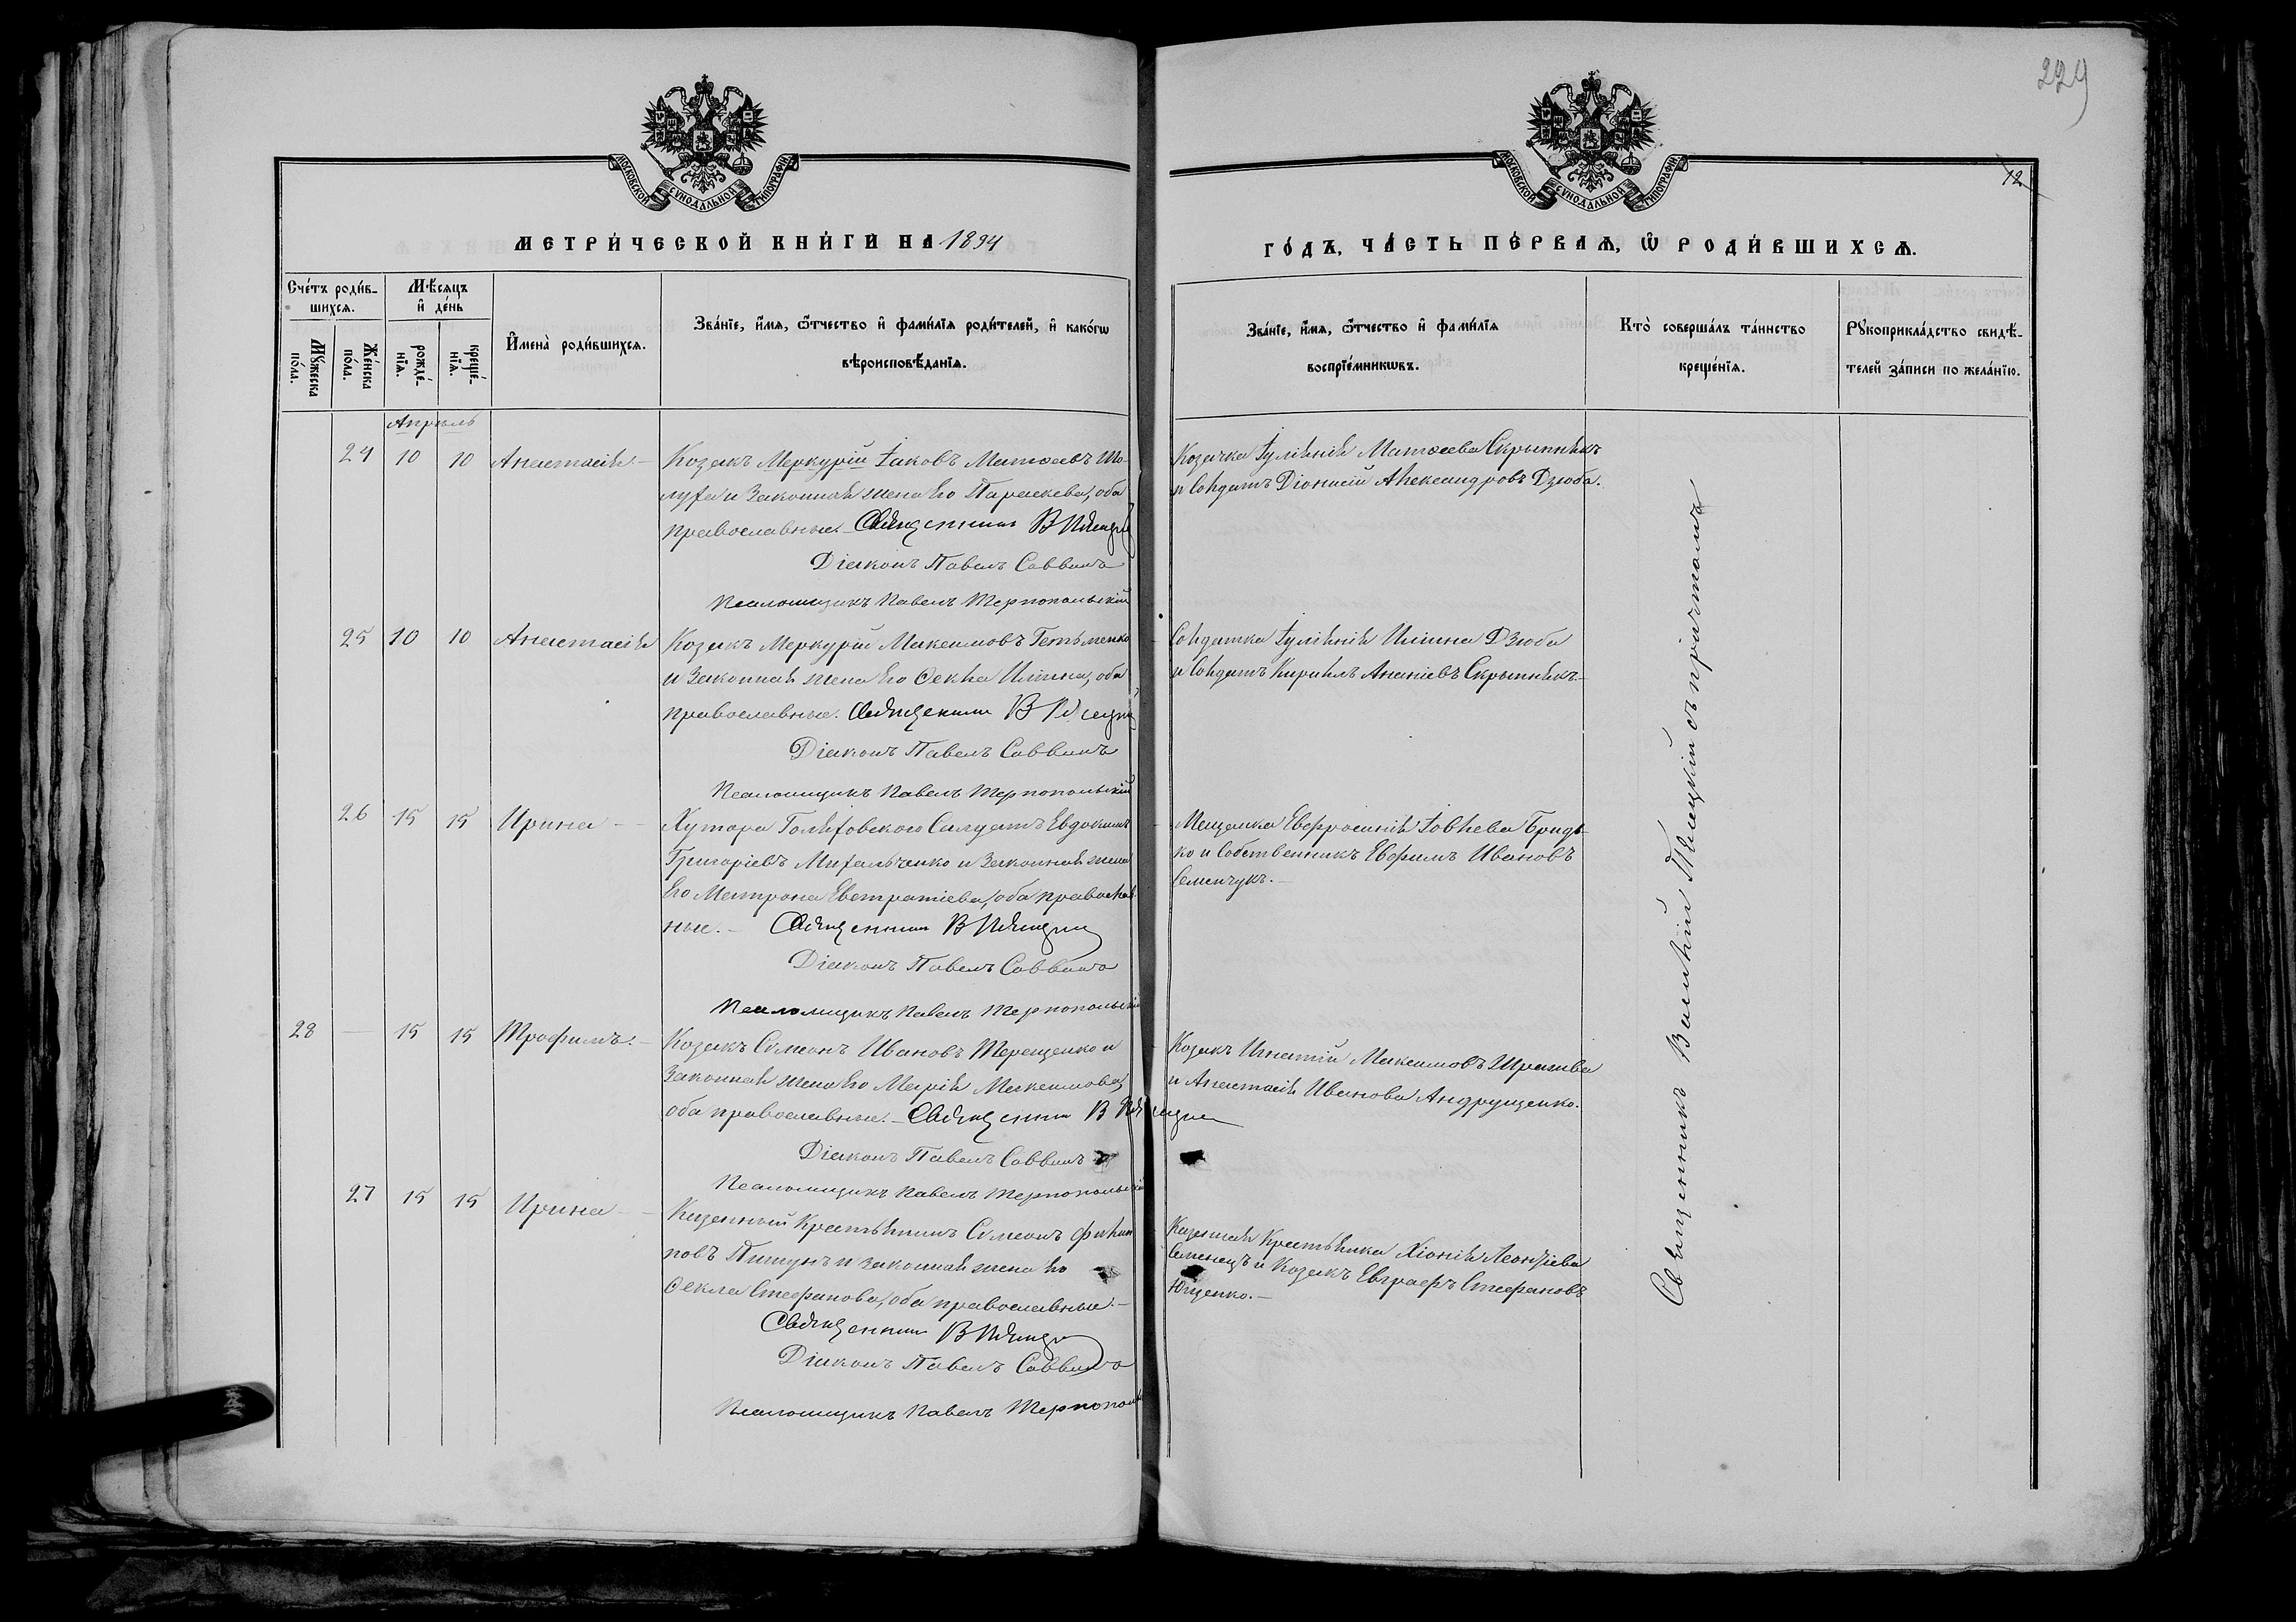 229
12
МОСКОВСКОЙ СУНОДАЛЬНОЙ ТИПОГРАФІИ
МОСКОВСКОЙ СУНОДАЛЬНОЙ ТИПОГРАФІИ
МЕТРИ́ЧЕСКОЙ КНИ́ГИ НА 1894
ГО́ДЪ, ЧА́СТЬ ПЕ́РВАѦ, Ѡ РОДИ́ВШИХСѦ.
Сче́тъ роди́в-
шихсѧ.
Мꙋ́жеска по́ла.
Же́нска по́ла.
Мѣ́сяцъ
и҆ де́нь
рожде́-
нїѧ.
креще́-
нїѧ.
И҆мена̀ роди́вшихсѧ.
Зва́нїе, и҆́мѧ, ѻ҆́тчество и҆ фами́лїѧ роди́телей, и҆ како́гѡ
вѣроисповѣ́данїѧ.
Зва́нїе, и҆́мѧ, ѻ҆́тчество и҆ фами́лїѧ
воспрїе́мникѡвъ.
Кто̀ соверша́лъ та́инство
креще́нїѧ.
Рꙋкоприкла́дство свидѣ́-
телей за́писи по жела́нїю.
Апрѣль
24 10 10 Анастасія — Козакъ Меркурій Іаковъ Матѳеевъ
и законная жена его Параскева, оба
православные. — Священникъ В Пясецкій
Діаконъ Павелъ Саввинъ
Псаломщикъ Павелъ Тернопольскій
Козачка Іуліанія Матѳеева Скрыпникъ
и Солдатъ Діонисій Александровъ Дзюба.
25 10 10 Анастасія Козакъ Меркурій Максимовъ Гетьменко
и законная жена его Ѳекла Иліина, оба
православные. Священникъ В Пясецкій
Діаконъ Павелъ Саввинъ
Псаломщикъ Павелъ Тернопольскій
Солдатка Іуліанія Иліина Дзюба
и Солдатъ Кириллъ Ананіевъ Скрыпникъ. —
26 15 15 Ирина — Хутора Солдатъ Евдокимъ
Григоріевъ Михальченко и законная жена
его Матрона Евстратіева, оба православ-
ные. — Священникъ В Пясецкій
Діаконъ Павелъ Саввинъ
Псаломщикъ Павелъ Тернопольскій
Мещанка Евфросинія Іовлева Бридь-
ко и Собственникъ Евфимъ Ивановъ
Семенчукъ. —
28 — 15 15 Трофимъ. — Козакъ Сѵмеонъ Ивановъ Терещенко и
законная жена его Марія Максимова,
оба православные. — Священникъ В Пясецкій
Діаконъ Павелъ Саввинъ
Псаломщикъ Павелъ Тернопольскій
Козакъ Игнатій Максимовъ
и Анастасія Иванова Андрущенко.
27 15 15 Ирина — Казенный Крестьянинъ Сѵмеонъ Филип-
повъ и законная жена его
Ѳекла Стефанова, оба православные. —
Священникъ В Пясецкій
Діаконъ Павелъ Саввинъ
Псаломщикъ Павелъ Тернополь
Казенная Крестьянка Хіонія Леонтіева
Семенецъ и Козакъ Евграфъ Стефановъ
Ющенко. —
Священникъ Василій Пясецкій съ причтомъ